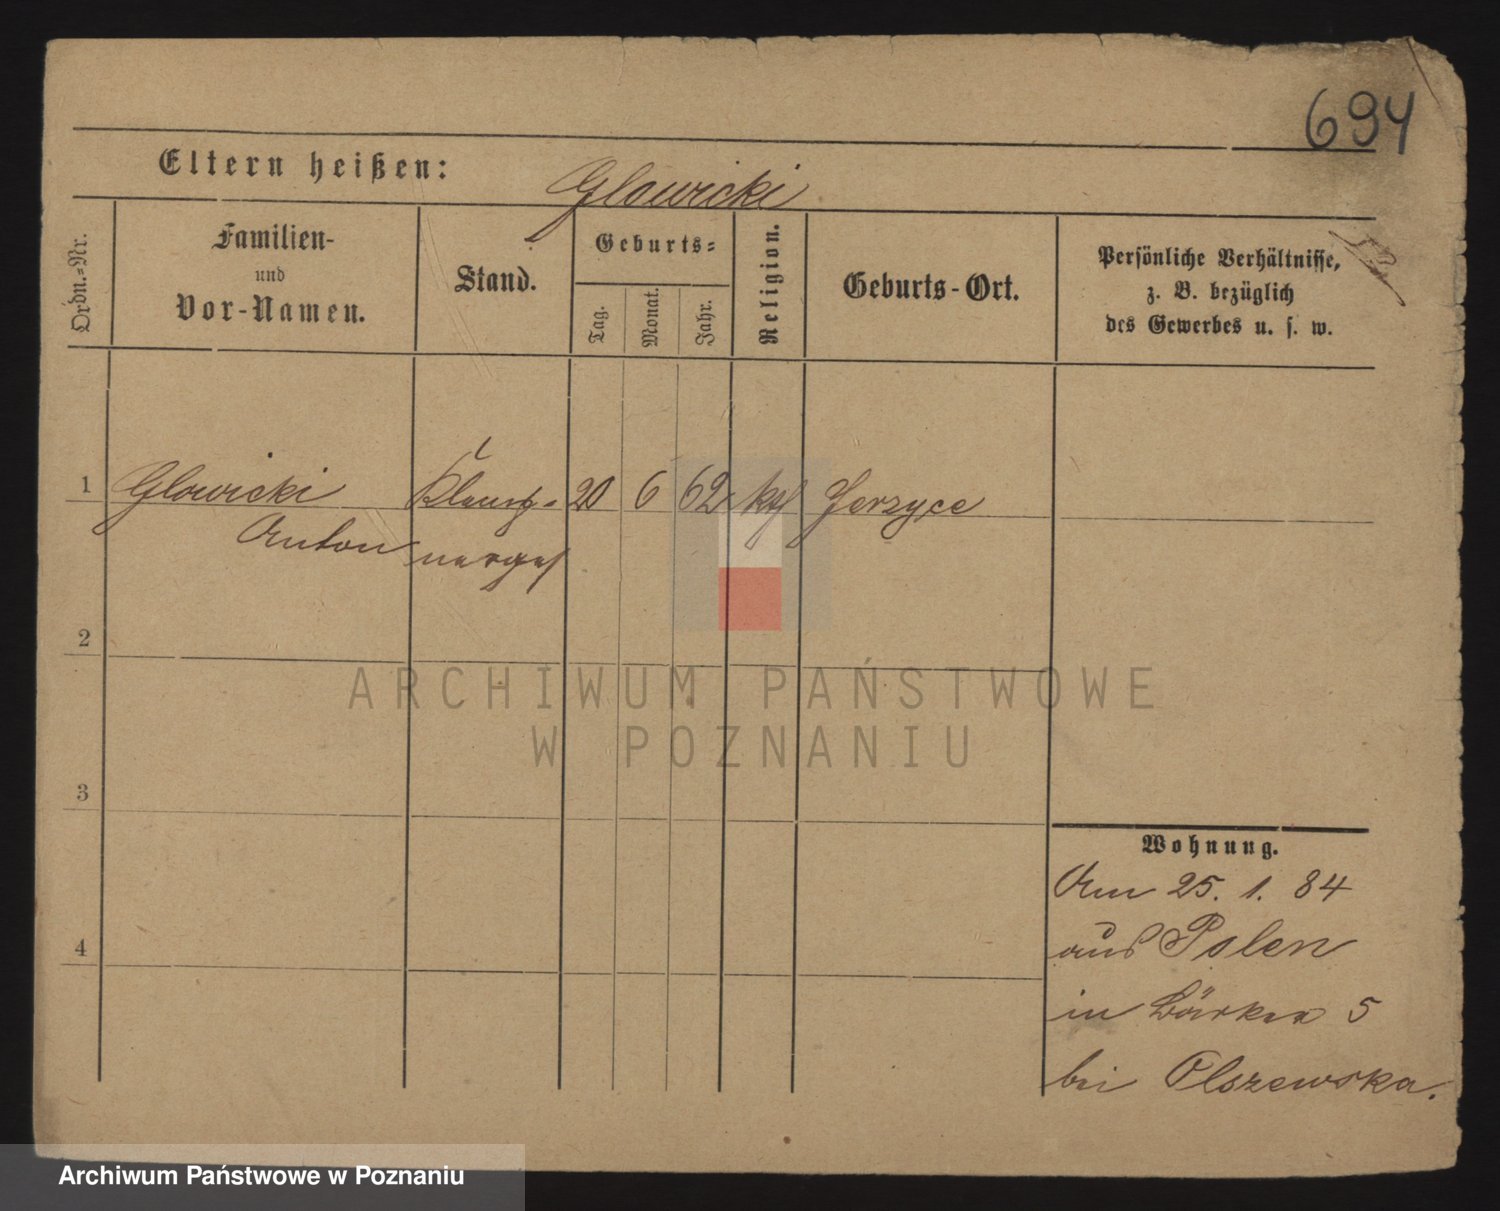 694
Eltern heißen:
Glowicki
Ordn.-Nr.
Familien-
und
Vor-Namen.
Stand.
Geburts-
Tag.
Monat.
Jahr.
Religion.
Geburts-Ort.
Persönliche Verhältnisse,
z. B. bezüglich
des Gewerbes u. s. w.
1 Glowicki 20 6 62 kth Jerzyce
Anton
2
3
4
Wohnung.
Am 25. 1. 84
aus Polen
in 5
bei Olszewska.
ARCHIWUM PAŃSTWOWE
W POZNANIU
Archiwum Państwowe w Poznaniu